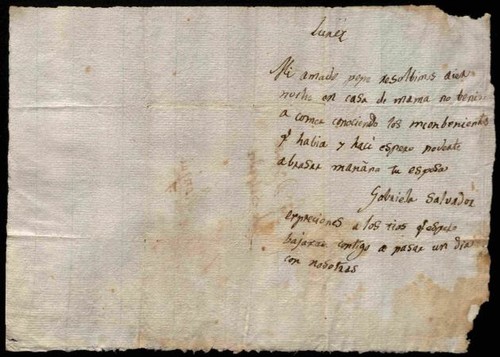 Lunes
Mi amado pepe resolbimos aier
noche en casa de mama no benir
a comer conociendo los inconbenientes
qᵉ habia y haci espero poderte
abrasar mañana tu esposa
Gobriela Salvador
erpreciones a los tios qᵉ espero
bajaran contigo a pasar un dia
con nosotras